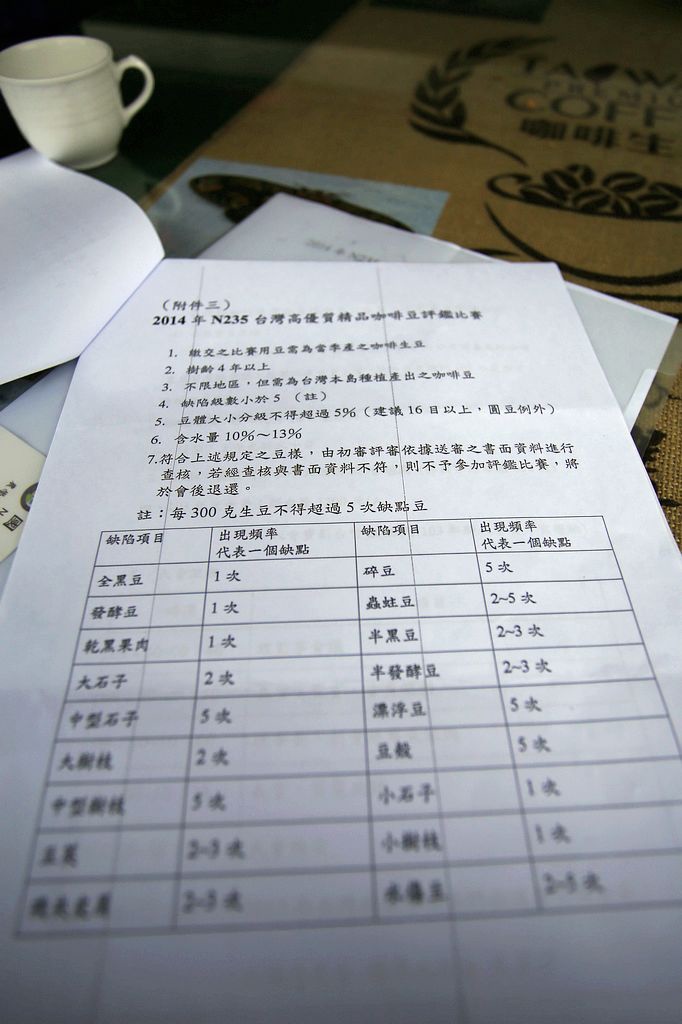 TAIWAN
PREMIUM
COFF
咖啡生
(附件三)
2014 年 N235 台灣高優質精品咖啡豆評鑑比賽
1. 繳交之比賽用豆需為當季產之咖啡生豆
2. 樹齡 4 年以上
3. 不限地區，但需為台灣本島種植產出之咖啡豆
4. 缺陷級數小於 5 （註）
5. 豆體大小分級不得超過 5%（建議 16 目以上，圓豆例外）
6. 含水量 10%～13%
7.符合上述規定之豆樣，由初審評審依據送審之書面資料進行
查核，若經查核與書面資料不符，則不予參加評鑑比賽，將
於會後退還。
註：每 300 克生豆不得超過 5 次缺點豆
缺陷項目 出現頻率 缺陷項目 出現頻率
代表一個缺點 代表一個缺點
全黑豆 1 次 碎豆 5 次
發酵豆 1 次 蟲蛀豆 2~5 次
乾黑果肉 1 次 半黑豆 2~3 次
大石子 2 次 半發酵豆 2~3 次
中型石子 5 次 漂浮豆 5 次
大樹枝 2 次 豆殼 5 次
中型樹枝 5 次 小石子 1 次
豆莢 2~3 次 小樹枝 1 次
2~3 次 水傷豆 2~5 次